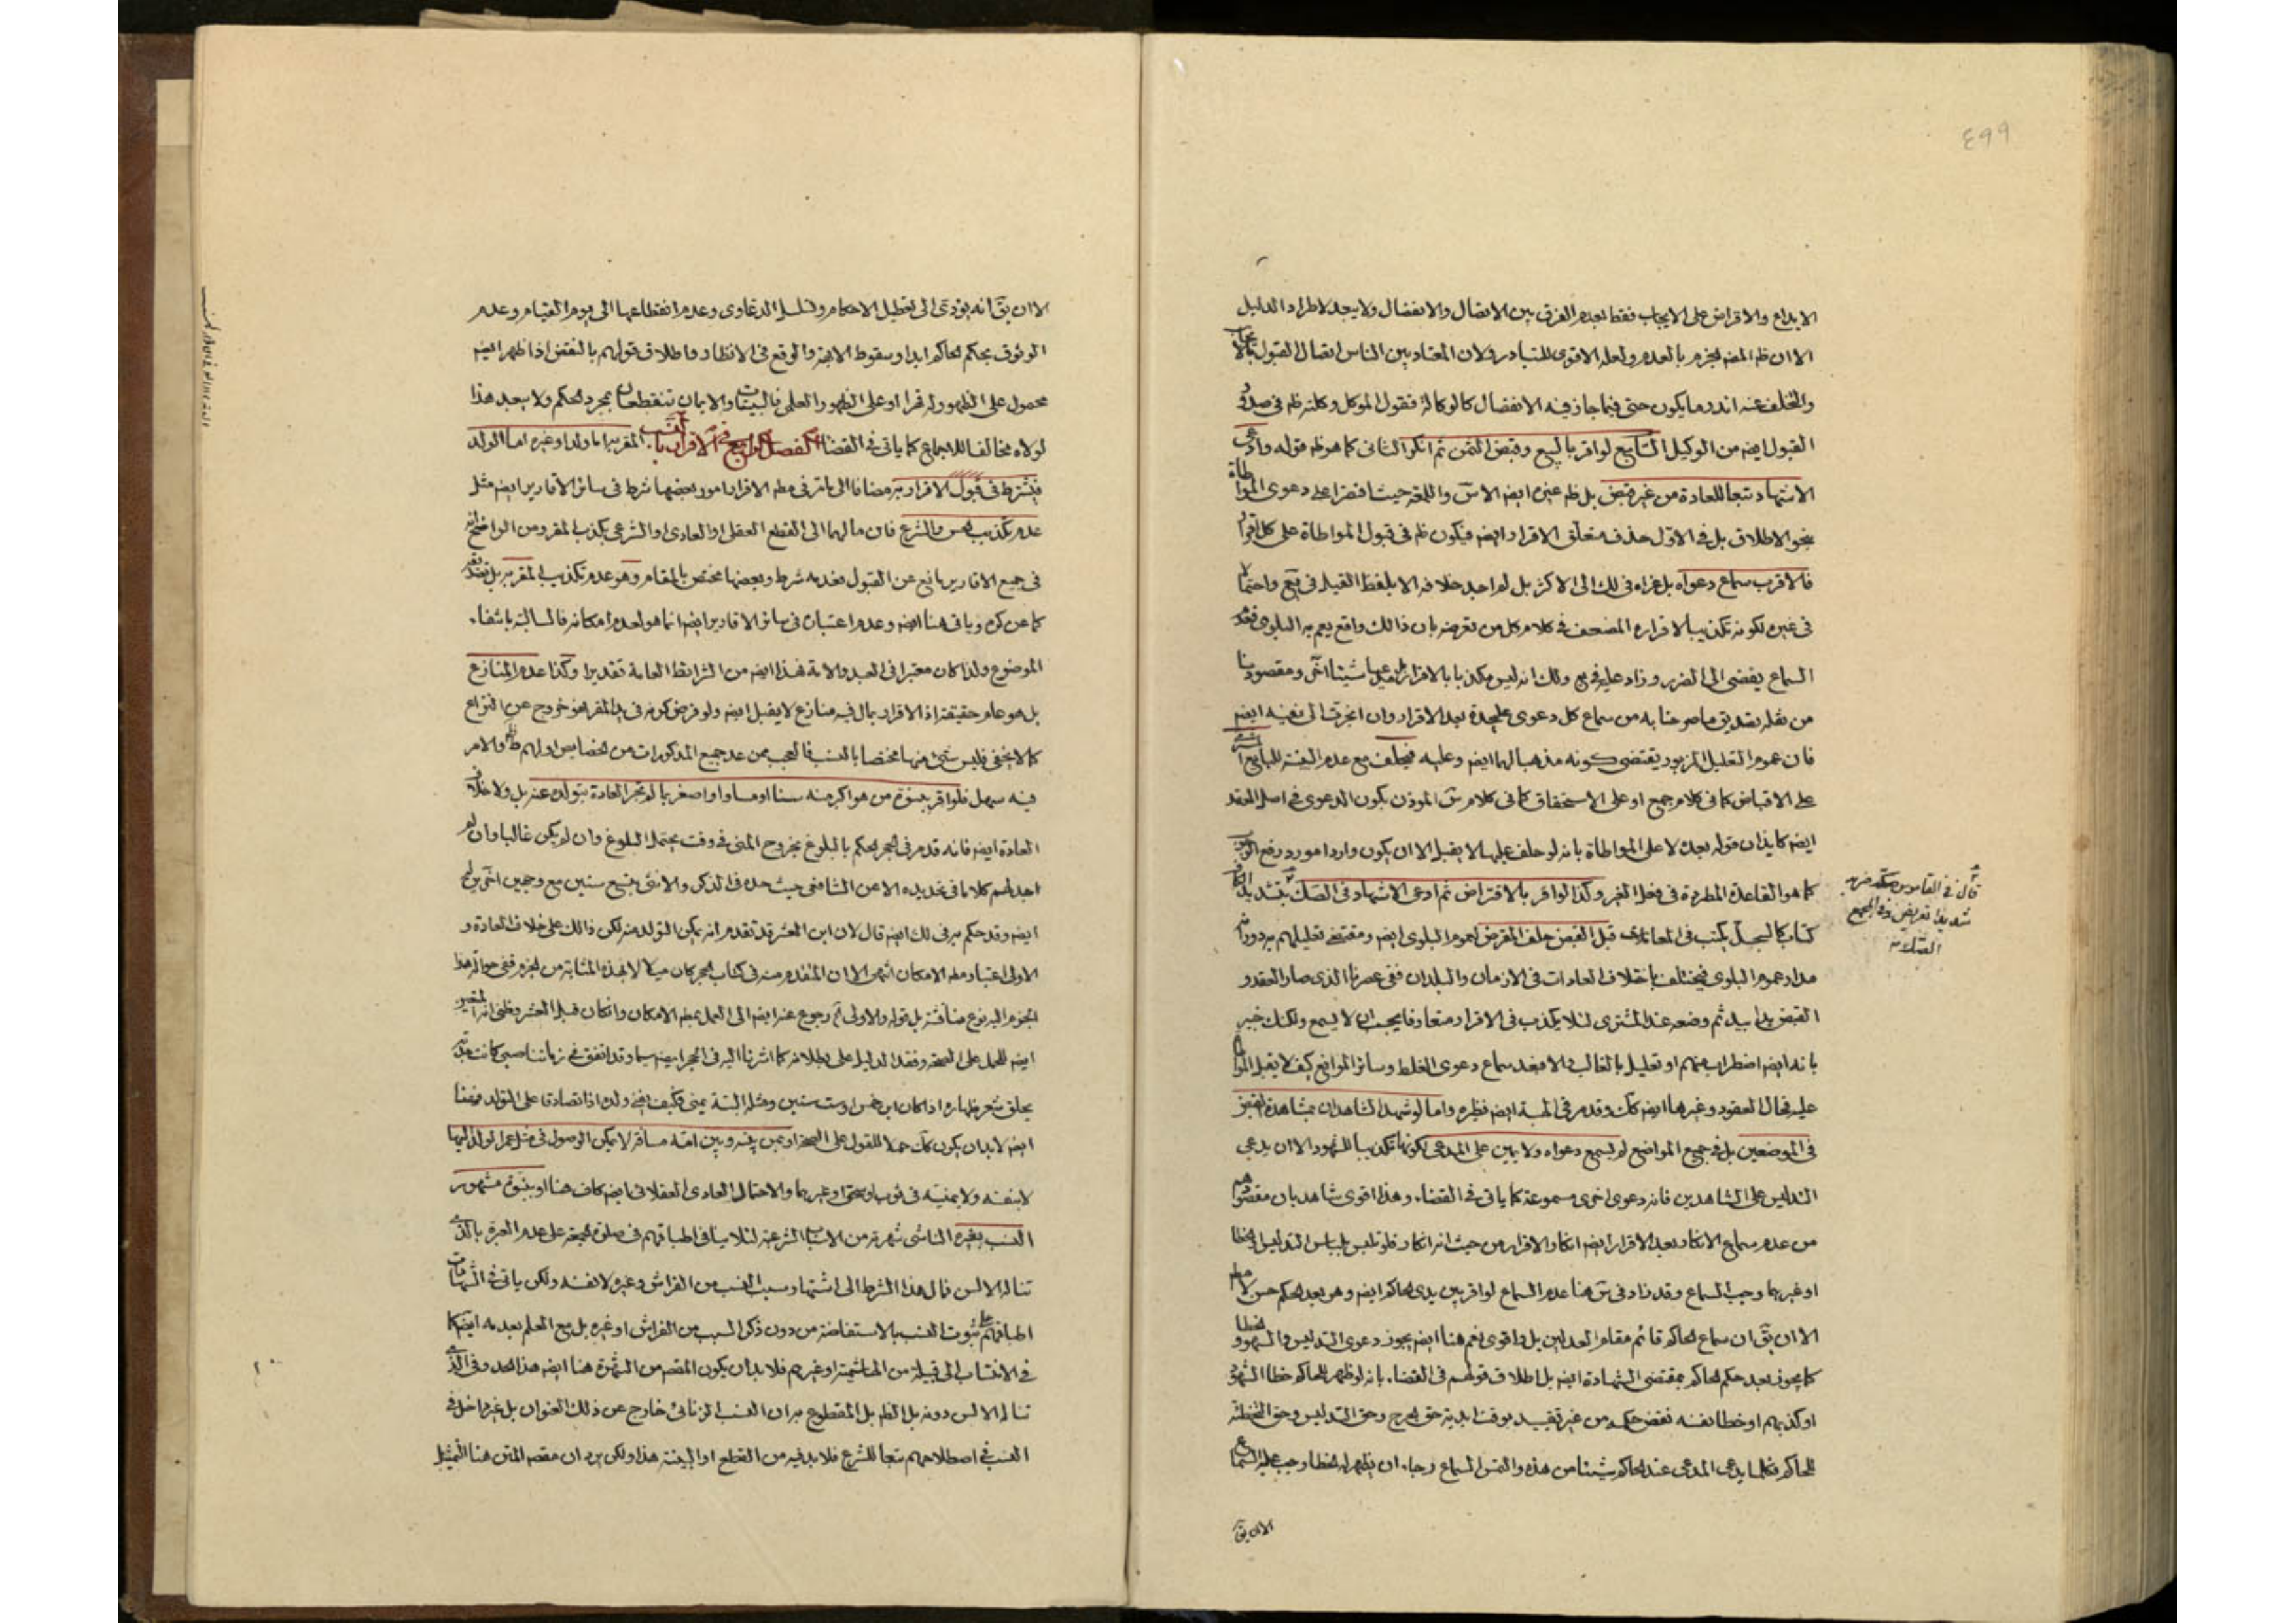 ٤٩٩
الايداع والاقراض على الايجاب فقط لعدم الفرق بين الاتصال والانفصال ولا يجد لاطراد الدليل
الا ان ظم المضه الجزم بالعدم ولعله الاقوى للتبادر ولان المعتاد بين الناس اتصال القبول
والتخلف عنه اندر ما يكون حتى فيما جاز فيه الانفصال كالوكالة فقول الموكل وكلته ظم في صدور
القبول ايضه من الوكيل السابع لو اقر بالبيع وقبض الثمن ثم انكر الثاني كما هو ظم قوله وادعى
الاشهاد تبعا للعادة من غير قبض بل ظم غيره ايضه الاس واللمعة حيث اقتصرا على دعوى المواطاة
بنحو الاطلاق بل في الاول حذف متعلق الاقرار ايضه فيكون ظم في قبول المواطاة على كل اقرار
فالاقرب سماع دعواه بل عزاه في لك الى الاكثر بل لم اجد خلافه الا بلفظ القيل في يع واحتمالا
في غيره لكونه تكذيبا لاقراره المضعف في كلام كل من تعرضه بان ذالك واقع يعم به البلوى فعدم
السماع يفضي الى الضرر وزاد عليه في لك انه ليس مكذبا بالاقرار شيئا اخر ومقصودنا
من نقله تصديق ما صرحنا به من سماع كل دعوى عليحدة بعد الاقرار وان انجرت الى نفيه ايضه
فان عموم التعليل المزبور يقتضي كونه مذهبا لهما ايضه وعليه فيحلف مع عدم البينة للبايع
على الاقباض كما في كلام جمع او على الاستحقاق كما في كلام س الموذن بكون الدعوى في اصل العقد
ايضه كايذان قوله بعدك لا على المواطاة بانه لو حلف عليها لا يقبل الا ان يكون واردا مورد
كما هو القاعدة المطردة في فعل الغير وكذا لو اقر بالاقتراض ثم ادعى الاشهاد في الصك بتشديد الكاف
كتاب كالسجل يكتب في المعاملات قبل القبض حلف المقرض لعموم البلوى ايضه ومقتضى تعليلهم به دوران
مدار عموم البلوى فيختلف باختلاف العادات في الازمان والبلدان ففي عصرنا الذي صار العقد و
القبض يدا بيد ثم وضعه عند المشتري لئلا يكذب في الاقرار متعارفا يجب ان لا يسمع ولكنك خبير
بانه ايضه اضطراب منهم او تعليل بالغالب والا فبعد سماع دعوى الغلط وسائر المواضع كيف لا يقبل
عليه فحال العقود وغيرها ايضه كك وقدم في الهبة ايضه نظيره واما لو شهد الشاهدان بمشاهدة القبض
في الموضعين بل في جميع المواضع لم يسمع دعواه ولا يمين على المدعى لكونها تكذيبا للشهود الا ان يدعى
التدليس على الشاهدين فانه دعوى اخرى مسموعة كما ياتى في القضاء وهذا اقوى شاهد بان مقصودهم
من عدم سماع الانكار بعد الاقرار ايضه انكار الاقرار من حيث انه انكار فلو تلبس بلباس التدليس او الخطا
او غيرهما وجب السماع وقد زاد في س هنا عدم السماع لو اقر بين يدي الحاكم ايضه وهو بعد الحكم حسن لا
الا ان يق ان سماع الحاكم قائم مقام العدلين بل واقوى نعم هنا ايضه يجوز دعوى التدليس والسهو و
كما يجوز بعد حكم الحاكم بمقتضى الشهادة ايضه بل اطلاق قولهم في القضاء بانه لو ظهر للحاكم خطا الشهود
او كذبهم او خطا نفسه نقض حكمه من غير تقييد بوقت ابد به حق الجرح وحق التدليس وحق التخطئة
للحاكم فكلما يدعى المدعى عند الحاكم شيئا من هذه والتمس السماع رجاء ان يظهر له الخطا وجب عليه السماع
الا ان يق
قال في القاموس صكه ضربه
شديدا
الا ان يق انه يؤدي الى تعطيل الاحكام وتسلسل الدعاوى وعدم انقطاعها الى يوم القيام وعدم
الوثوق بحكم الحاكم ابدا وسقوط الابهة والوقع في الانظار واطلاق قولهم بالنقض اذا ظهر ايضه
محمول على الظهور له قهرا او على الظهور العلمى فالبينات والايمان تنقطعان بمجرد الحكم ولا يبعد هذا
لولاه مخالفا للاجماع كما ياتى في القضاء الفصل الرابع في الاقرار بالنسب المقر به اما ولد او غيره اما الولد
فيشترط في قبول الاقرار به مضافا الى ما مر في مطه الاقرار امور بعضها شرط في سائر الاقارير ايضه مثل
عدم تكذيب الحس والشرع فان مالهما الى القطع العقلى او العادى او الشرعى بكذب المقر ومن الواضح انه
في جميع الاقارير مانع عن القبول فعدمه شرط وبعضها مختص بالمقام وهو عدم تكذيب المقر به بل تصديقه
كما عن كره وياتى هنا ايضه وعدم اعتباره في سائر الاقارير ايضه انما هو لعدم امكانه فالسالبة بانتفاء
الموضوع ولذا كان معتبرا في العبد والامة فهذا ايضه من الشرائط العامة تقديرا وكذا عدم المنازع
بل هو عام حقيقة اذ الاقرار بمال فيه منازع لا يقبل ايضه ولو فرض كونه في يد المقر فهو خروج عن النزاع
كما لا يخفى فليس شئ منها مختصا بالنسب فالعجب ممن عد جميع المذكورات من الخصايص اولهم والامر
فيه سهل فلو اقر ببنوة من هو اكبر منه سنا او مساو او اصغر بما لم تجر العادة بتولده عنه بل ولا خلاف
العادة ايضه فانه قدم في الحجر الحكم بالبلوغ بخروج المنى في وقت يحتمل البلوغ وان لم يكن غالبا وان لم
اجد لهم كلاما في تحديده الا عن الشافعي حيث حده في الذكر والانثى بتسع سنين مع وجهين اخرين له
ايضه وقد حكم به في لك ايضه قال لان ابن العشر قد تقدم انه يمكن التولد منه لكن ذالك على خلاف العادة و
الاولى اعتبار مطه الامكان انتهى الا ان المتقدم منه في كتاب الحجر كان ميلا لا بهذه المثابة من الجزم ففي حوالة هذا
الجزم اليه نوع مناقشة بل قوله والاولى اه رجوع عنه ايضه الى العمل بمطه الامكان وان كان قبل العشر وظنى انه المتعين
ايضه للحمل على الصحة وفقد الدليل على بطلانه كما اشرنا اليه في الحجر ايضه سيما وقد اتفق في زماننا صبى كانت
يحلق شعر ظهاره اذ كان ابن خمس او ست سنين ومثله البتة يمنى فكيف ولده اذا تصادقا على التولد
ايضه لابد ان يكون كك حملا للقول على الصحة او بمن بينه وبين امه مسافة لا يمكن الوصول في مثل عمر الولد اليها
لا بنفسه ولا بمنيه في ثوب او غيرهما والاحتمال العادى العقلائى ايضه كاف هنا او ببنوة مشهور
النسب بغيره الناشى شهرته من الاسباب الشرعية لئلا ينافى اطباقهم في صلوة الجمعة على عدم العبرة بالذى
تناله الالسن فال هذا الشرط الى اشتهار سبب النسب من الفراش وغيره لا نفسه ولكن ياتى في الشهادات
اطباقهم على ثبوت النسب بالاستفاضة من دون ذكر السبب من الفراش او غيره بل مع العلم بعدمه ايضه كما
في الانتساب الى قبيلة من الهاشمية او غيرهم فلابد ان يكون المقصد من الشهرة هنا ايضه هذا الحد وفي الذى
تناله الالسن دونه بل الظم بل المقطوع به ان النسب الزنائى خارج عن ذلك العنوان بل غير داخل في
النسب في اصطلاحهم تبعا للشرع فلابد فيه من القطع او البينة هذا ولكن يرد ان مقصد المتن هنا التمثيل